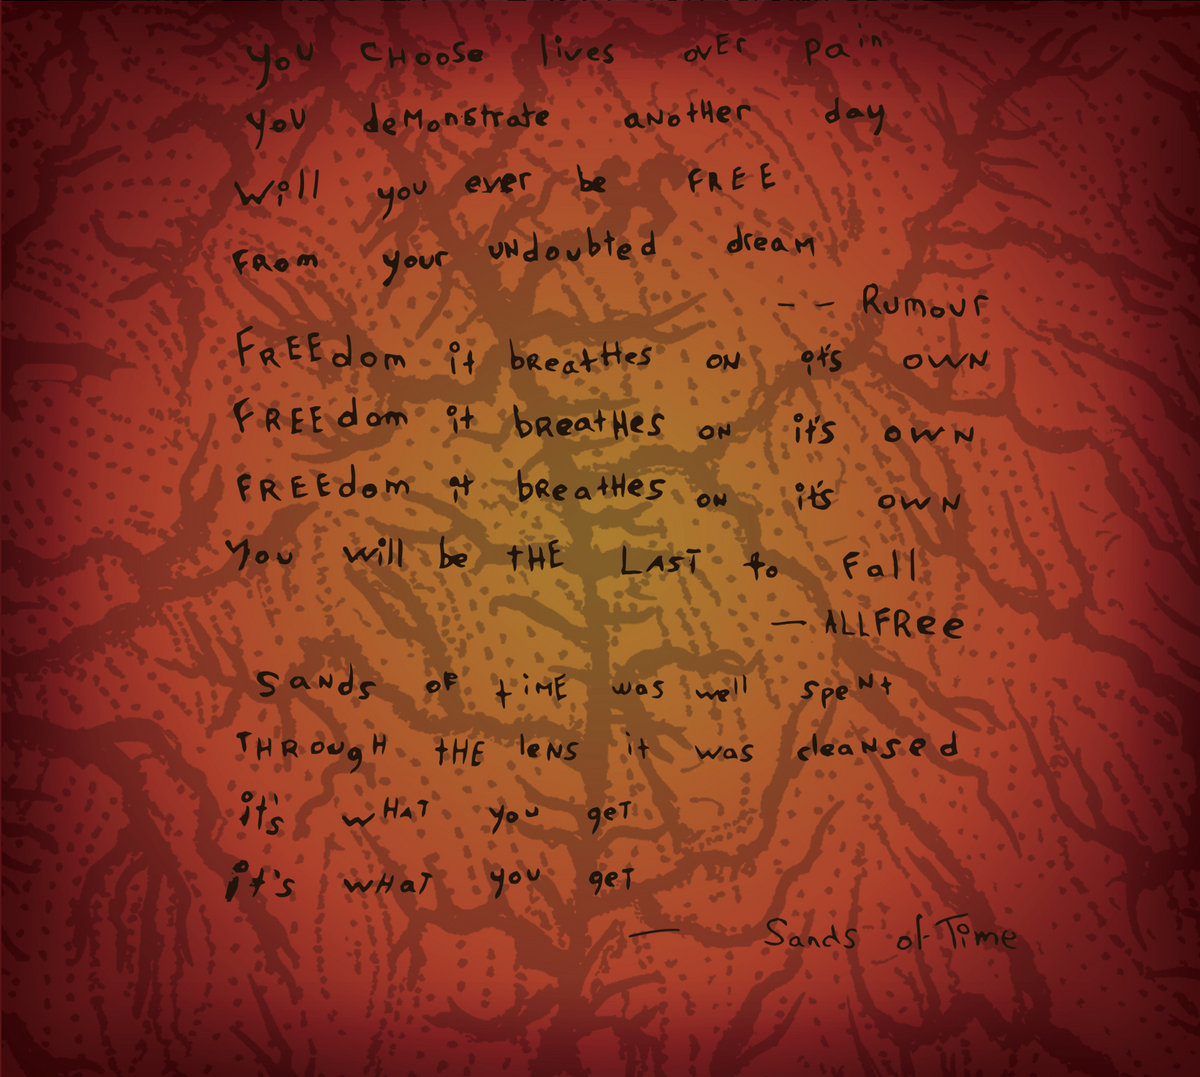 You CHOOSE lives over pain
you demonstrate another day
Will you ever be FREE
FROM your undoubted dream
-- Rumour
FREEdom it breathes on it's own
FREEdom it breathes on it's own
FREEdom it breathes on it's own
You will be THE LAST to Fall
— ALLFREE
Sands of time was well spent
THROUGH THE lens it was cleansed
it's wHAT you get
it's wHaT you get
— Sands of Time